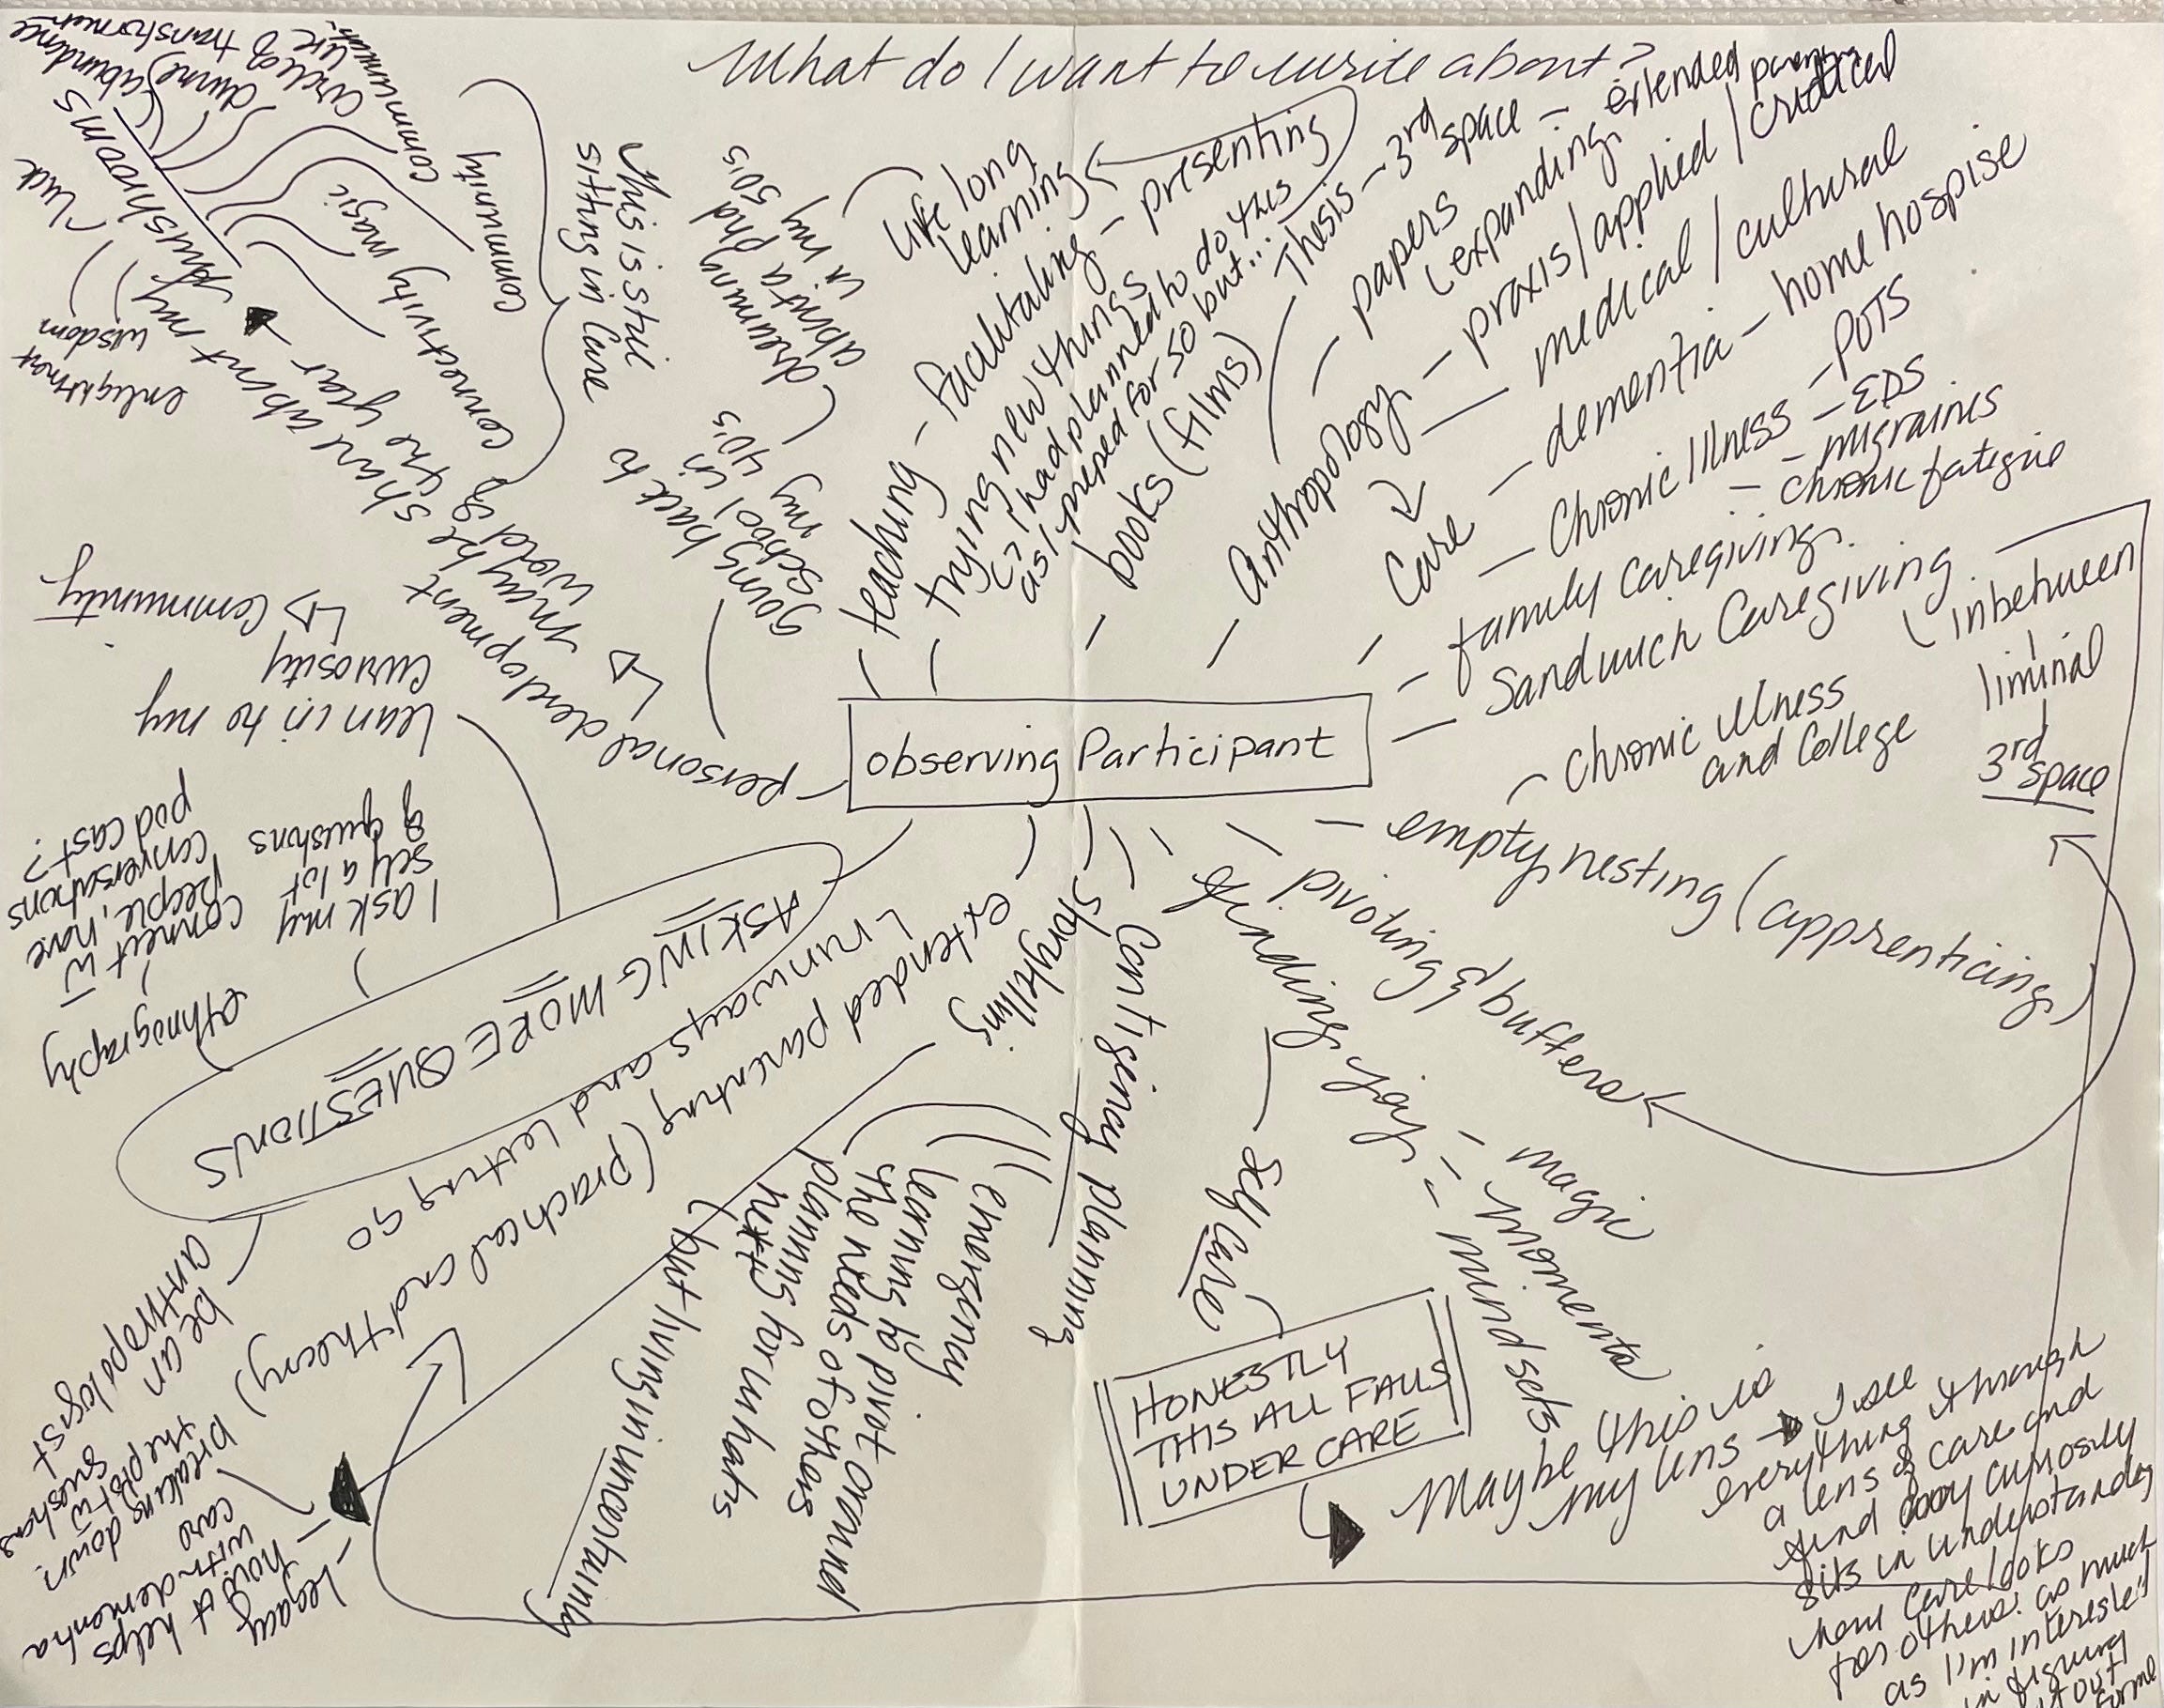 What do I want to write about?
observing Participant
teaching - facilitating - presenting
life long
learning
trying new things
↳ I had planned to do this
as I preped for 50 but...
books (films)
Thesis - 3rd space - extended parenting
papers
(expanding
Anthropology - praxis / applied / critical
medical / cultural
Care - dementia - home hospise
- Chronic Illness - POTS
- EDS
- migraines
- chronic fatigue
- family caregiving
- Sandwich Caregiving
(inbetween
liminal
3rd
space
- Chronic illness
and College
- empty nesting (apprenticing)
- pivoting & buffers
finding joy - magic
- moments
- mindsets
Self Care
HONESTLY
THIS ALL FALLS
UNDER CARE
Maybe this is
my lens → I see
everything through
a lens of care and
find my curiosity
sits in understanding
how care looks
for others as much
as I'm interested
in figuring
it out
Contigency planning
(emergency
learning to pivot around
the needs of others
planning for whats
next
(but living in uncertainty
storytelling
extended parenting (practical and theory)
runways and letting go
ASKING MORE QUESTIONS
be an
anthropologist
ethnography
connect w
people, have
conversations
podcast?
I ask my
self a lot
of questions
lean in to my
curiosity
↳ community
Legacy
how it helps
with dementia
care
breaking down
the plot w
questions
personal development
↳ maybe share
the year
about my
world of
mushrooms
(abundance
divine
circle of life
transformer
communicate
community
connectivity
magic
luck
wisdom
community
This is still
sitting in Care
going back to
school in
my 40's
(dreaming
about a phd
in my 50's